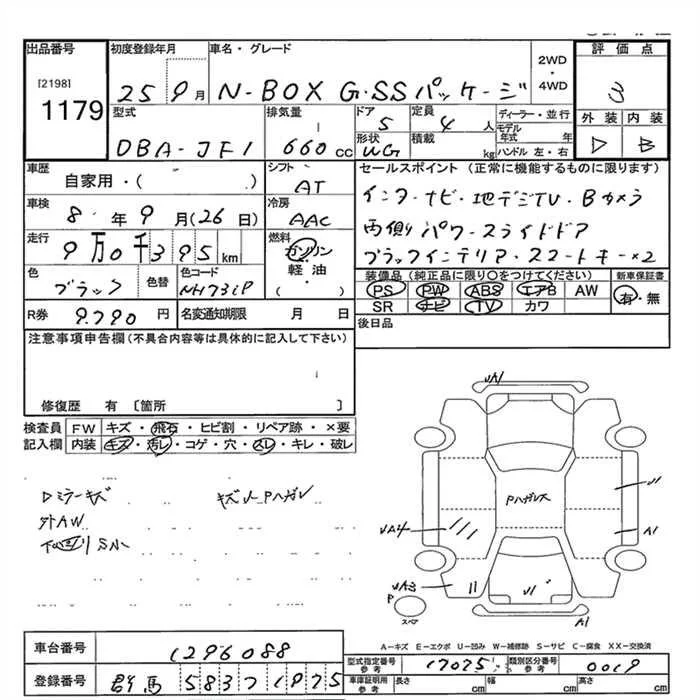 出品番号 初度登録年月 車名・グレード 2WD・4WD 評価点
[2198] 1179 25 9月 N-BOX G・SSパッケージ 3
型式 排気量 ドア 定員 ディーラー・並行 外装 内装
DBA-JF1 660cc 5 4人 モデル年式 年 D B
形状 WG 積載 kg ハンドル 左・右
車歴 シフト セールスポイント (正常に機能するものに限ります)
自家用・( ) AT インター ナビ・地デジTV・Bカメラ
車検 冷房 両側パワースライドドア
8年9月(26日) AAC ブラックインテリア・スマートキー×2
走行 燃料
9万0千395km ガソリン
色 色替 色コード 軽油 装備品 (純正品に限り○をつけてください) 新車保証書
ブラック NH731P ( ) PS PW ABS エアB AW 有・無
SR ナビ TV カワ
R券 9790円 名変通知期限 月 日 後日品
注意事項申告欄(不具合内容等は具体的に記入して下さい)
修復歴 有 〔箇所 〕
検査員 FW キズ・飛石・ヒビ割・リペア跡・×要
記入欄 内装 キズ・汚レ・コゲ・穴・スレ・キレ・破レ
Dミラーキズ キズ小Pハガレ
外AW
下回りS小
Pハガレス
A1
A1
スペア
A-キズ E-エクボ U-凹み W-補修跡 S-サビ C-腐食 XX-交換済
車台番号 1296088
型式指定番号 参考 17075 類別区分番号 参考 0019
登録番号 群馬 583 7 1975
車庫証明用 参考 長さ cm 幅 cm 高さ cm